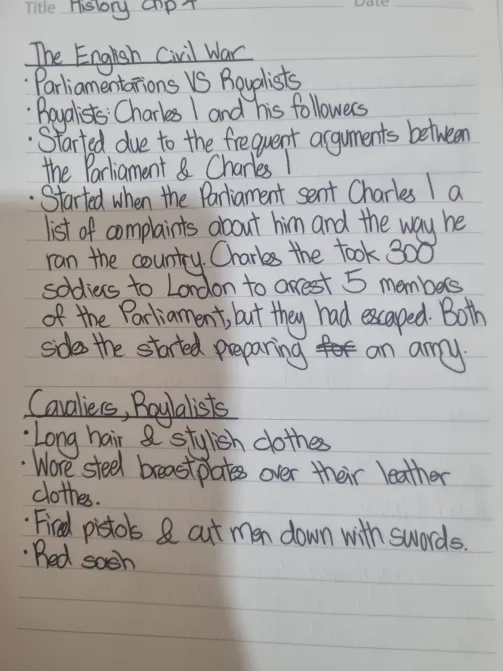 Title History Chp 4
Date
The English Civil War
· Parliamentarions VS Royalists
· Royalists: Charles I and his followers
· Started due to the frequent arguments between
the Parliament & Charles I
· Started when the Parliament sent Charles I a
list of complaints about him and the way he
ran the country. Charles the took 300
soldiers to London to arrest 5 members
of the Parliament, but they had escaped. Both
sides the started preparing for an army.
Cavaliers, Roylalists
· Long hair & stylish clothes
· Wore steel breastplates over their leather
clothes.
· Fired pistols & cut men down with swords.
· Red sash